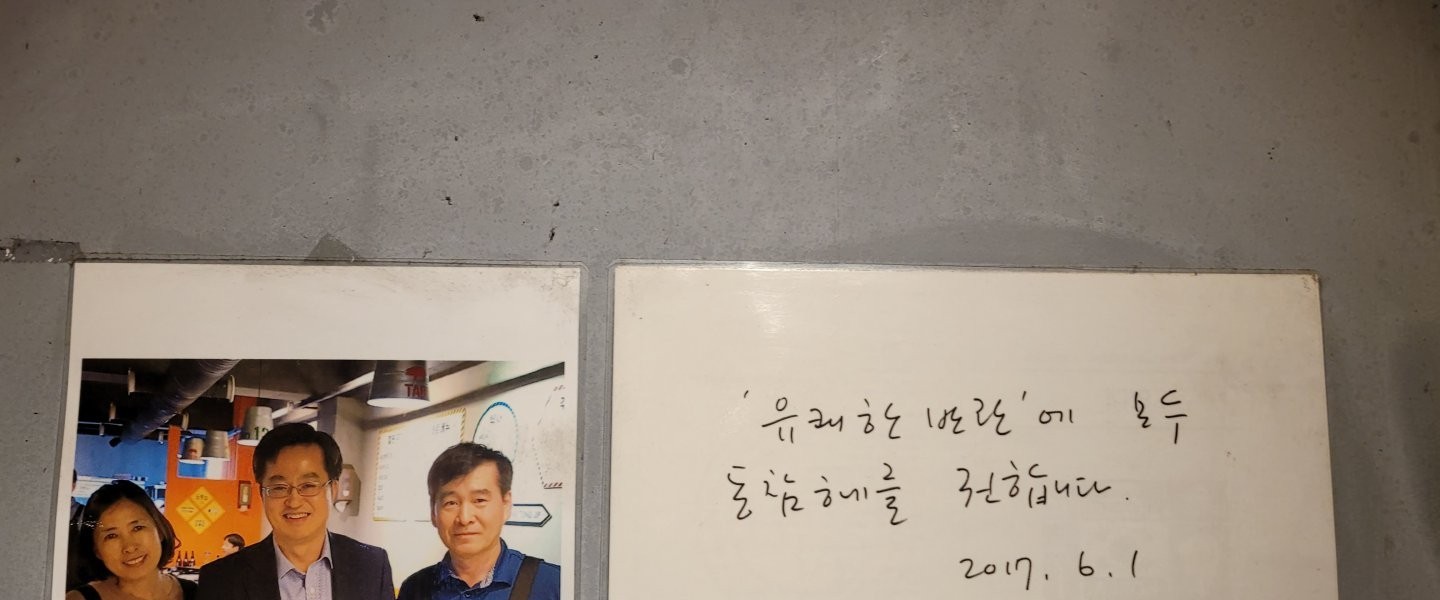 TAP
12
'유쾌한 반란'에 모두
동참해를 권합니다.
2017. 6. 1